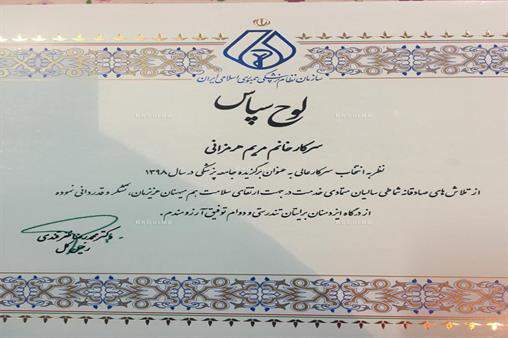 سازمان نظام پزشکی جمهوری اسلامی ایران
لوح سپاس
سرکار خانم مریم هرمزانی
نظر به انتخاب سرکار عالی به عنوان برگزیده جامعه پزشکی در سال ۱۳۹۸
از تلاش های صادقانه شما طی سالیان متمادی خدمت در جهت ارتقای سلامت هم میهنان عزیزمان، تشکر و قدردانی نموده
از درگاه ایزد منان برایتان تندرستی و دوام توفیق آرزومندم.
دکتر محمدرضا ظفرقندی
رئیس کل